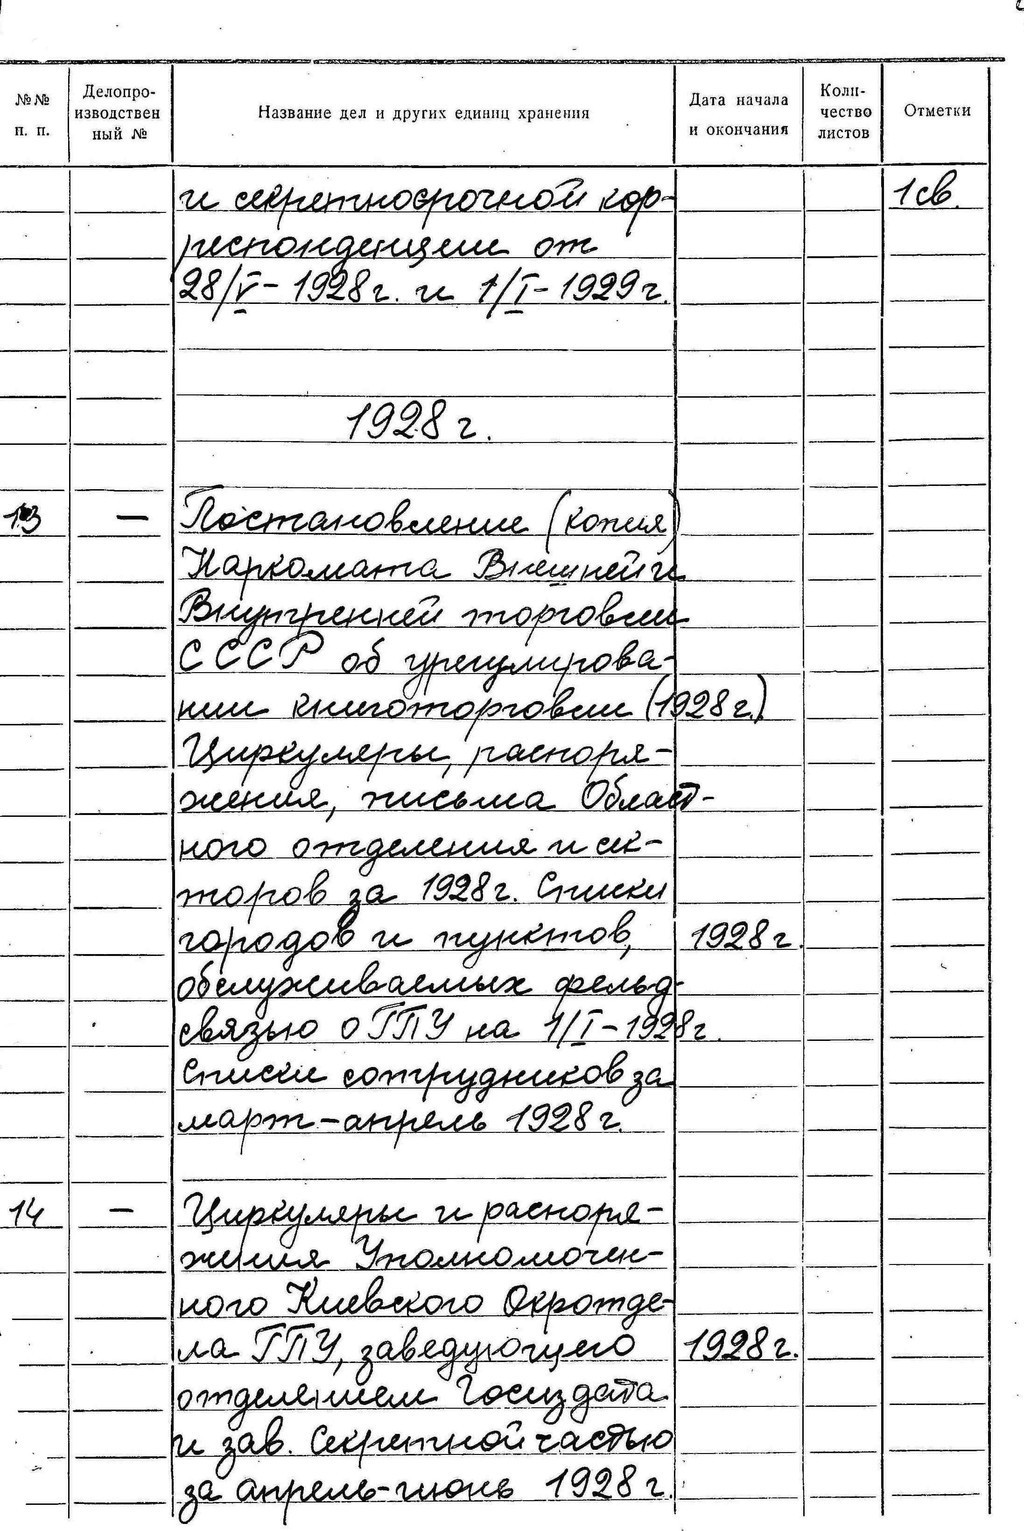 №№ п. п.
Делопро-
изводствен
ный №
Название дел и других единиц хранения
Дата начала
и окончания
Коли-
чество
листов
Отметки
и секретносрочной кор-
респонденции от
28/V – 1928 г. и 1/I – 1929 г.
1 св.
1928 г.
13 — Постановление (копия)
Наркомата Внешней и
Внутренней торговли
СССР об урегулирова-
нии книготорговли (1928 г.)
Циркуляры, распоря-
жения, письма Област-
ного отделения и сек-
торов за 1928 г. Списки
городов и пунктов, 1928 г.
обслуживаемых фельд-
связью ОГПУ на 1/I – 1928 г.
Списки сотрудников за
март – апрель 1928 г.
14 — Циркуляры и распоря-
жения Уполномочен-
ного Киевского Окротде-
ла ГПУ, заведующего 1928 г.
отделением Госиздата
и зав. Секретной частью
за апрель-июнь 1928 г.